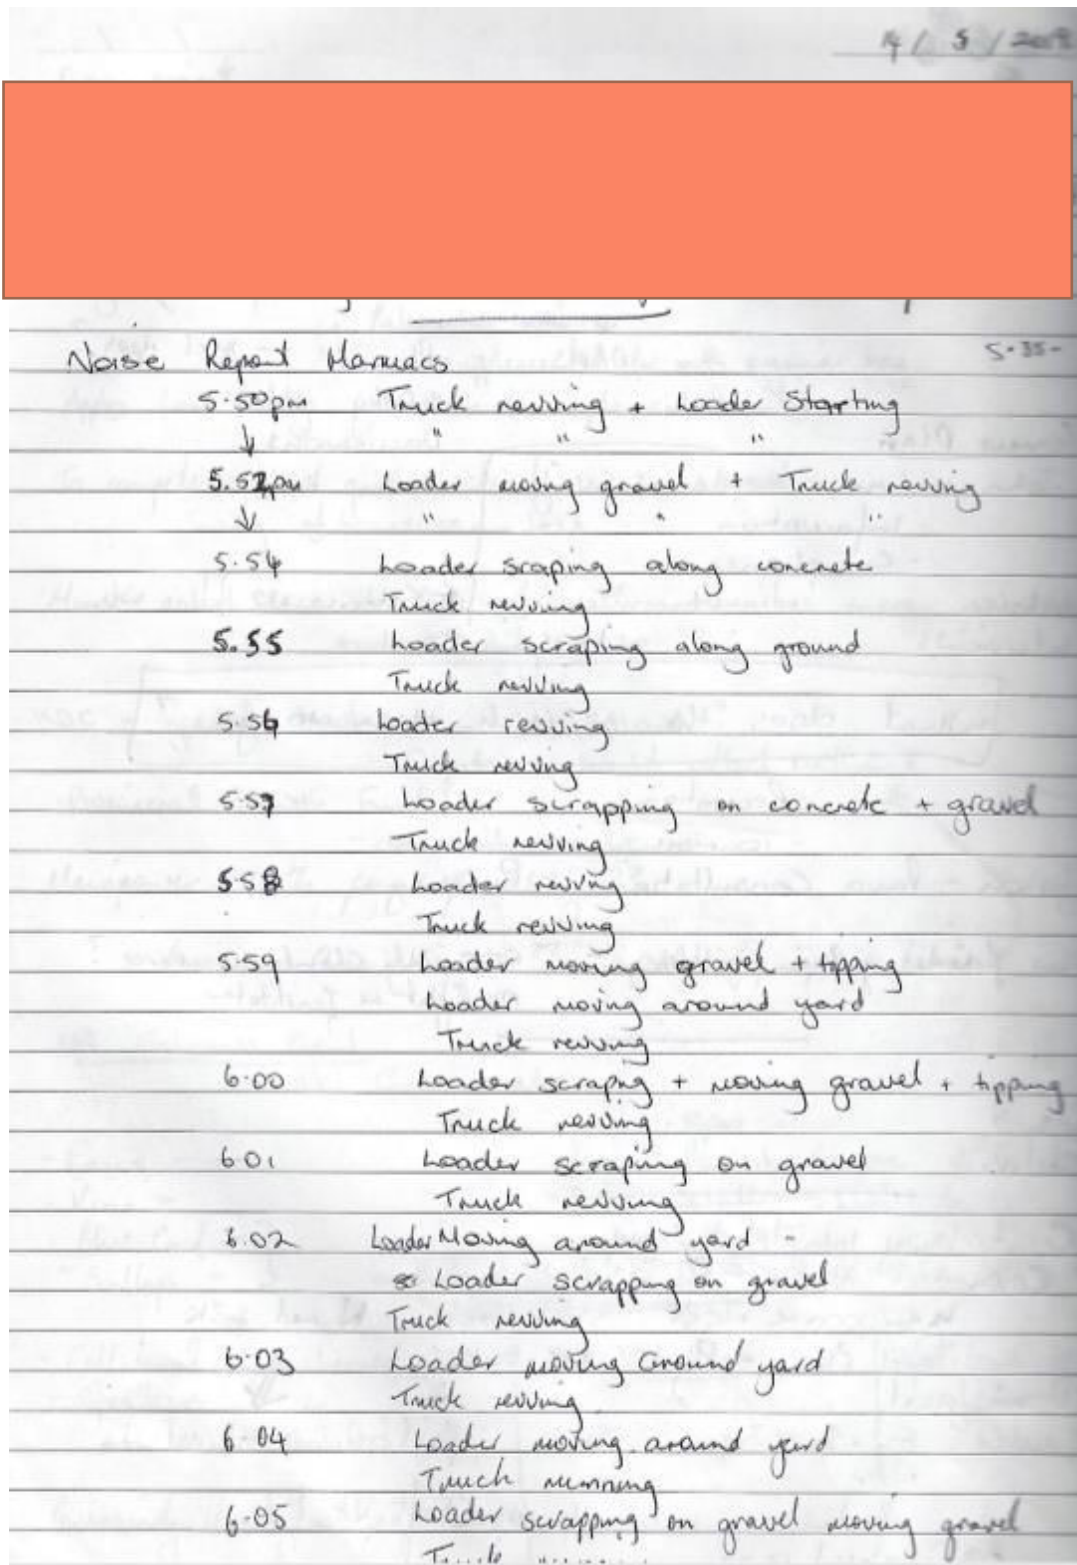 14 / 5 / 2019
Noise Report Harmacs 5.35-
5.50pm Truck revving + Loader Starting
↓ " " "
5.52pm Loader moving gravel + Truck revving
↓ " " "
5.54 Loader sraping along concrete
Truck revving
5.55 Loader scraping along ground
Truck revving
5.56 Loader revving
Truck revving
5.57 Loader scrapping on concrete + gravel
Truck revving
5.58 Loader revving
Truck revving
5.59 Loader moving gravel + tipping
Loader moving around yard
Truck revving
6.00 Loader scrapng + moving gravel + tipping
Truck revving
6.01 Loader scraping on gravel
Truck revving
6.02 Loader Moving around yard -
Loader scrapping on gravel
Truck revving
6.03 Loader moving around yard
Truck revving
6.04 Loader moving around yard
Truck running
6.05 Loader scrapping on gravel moving gravel
Truck